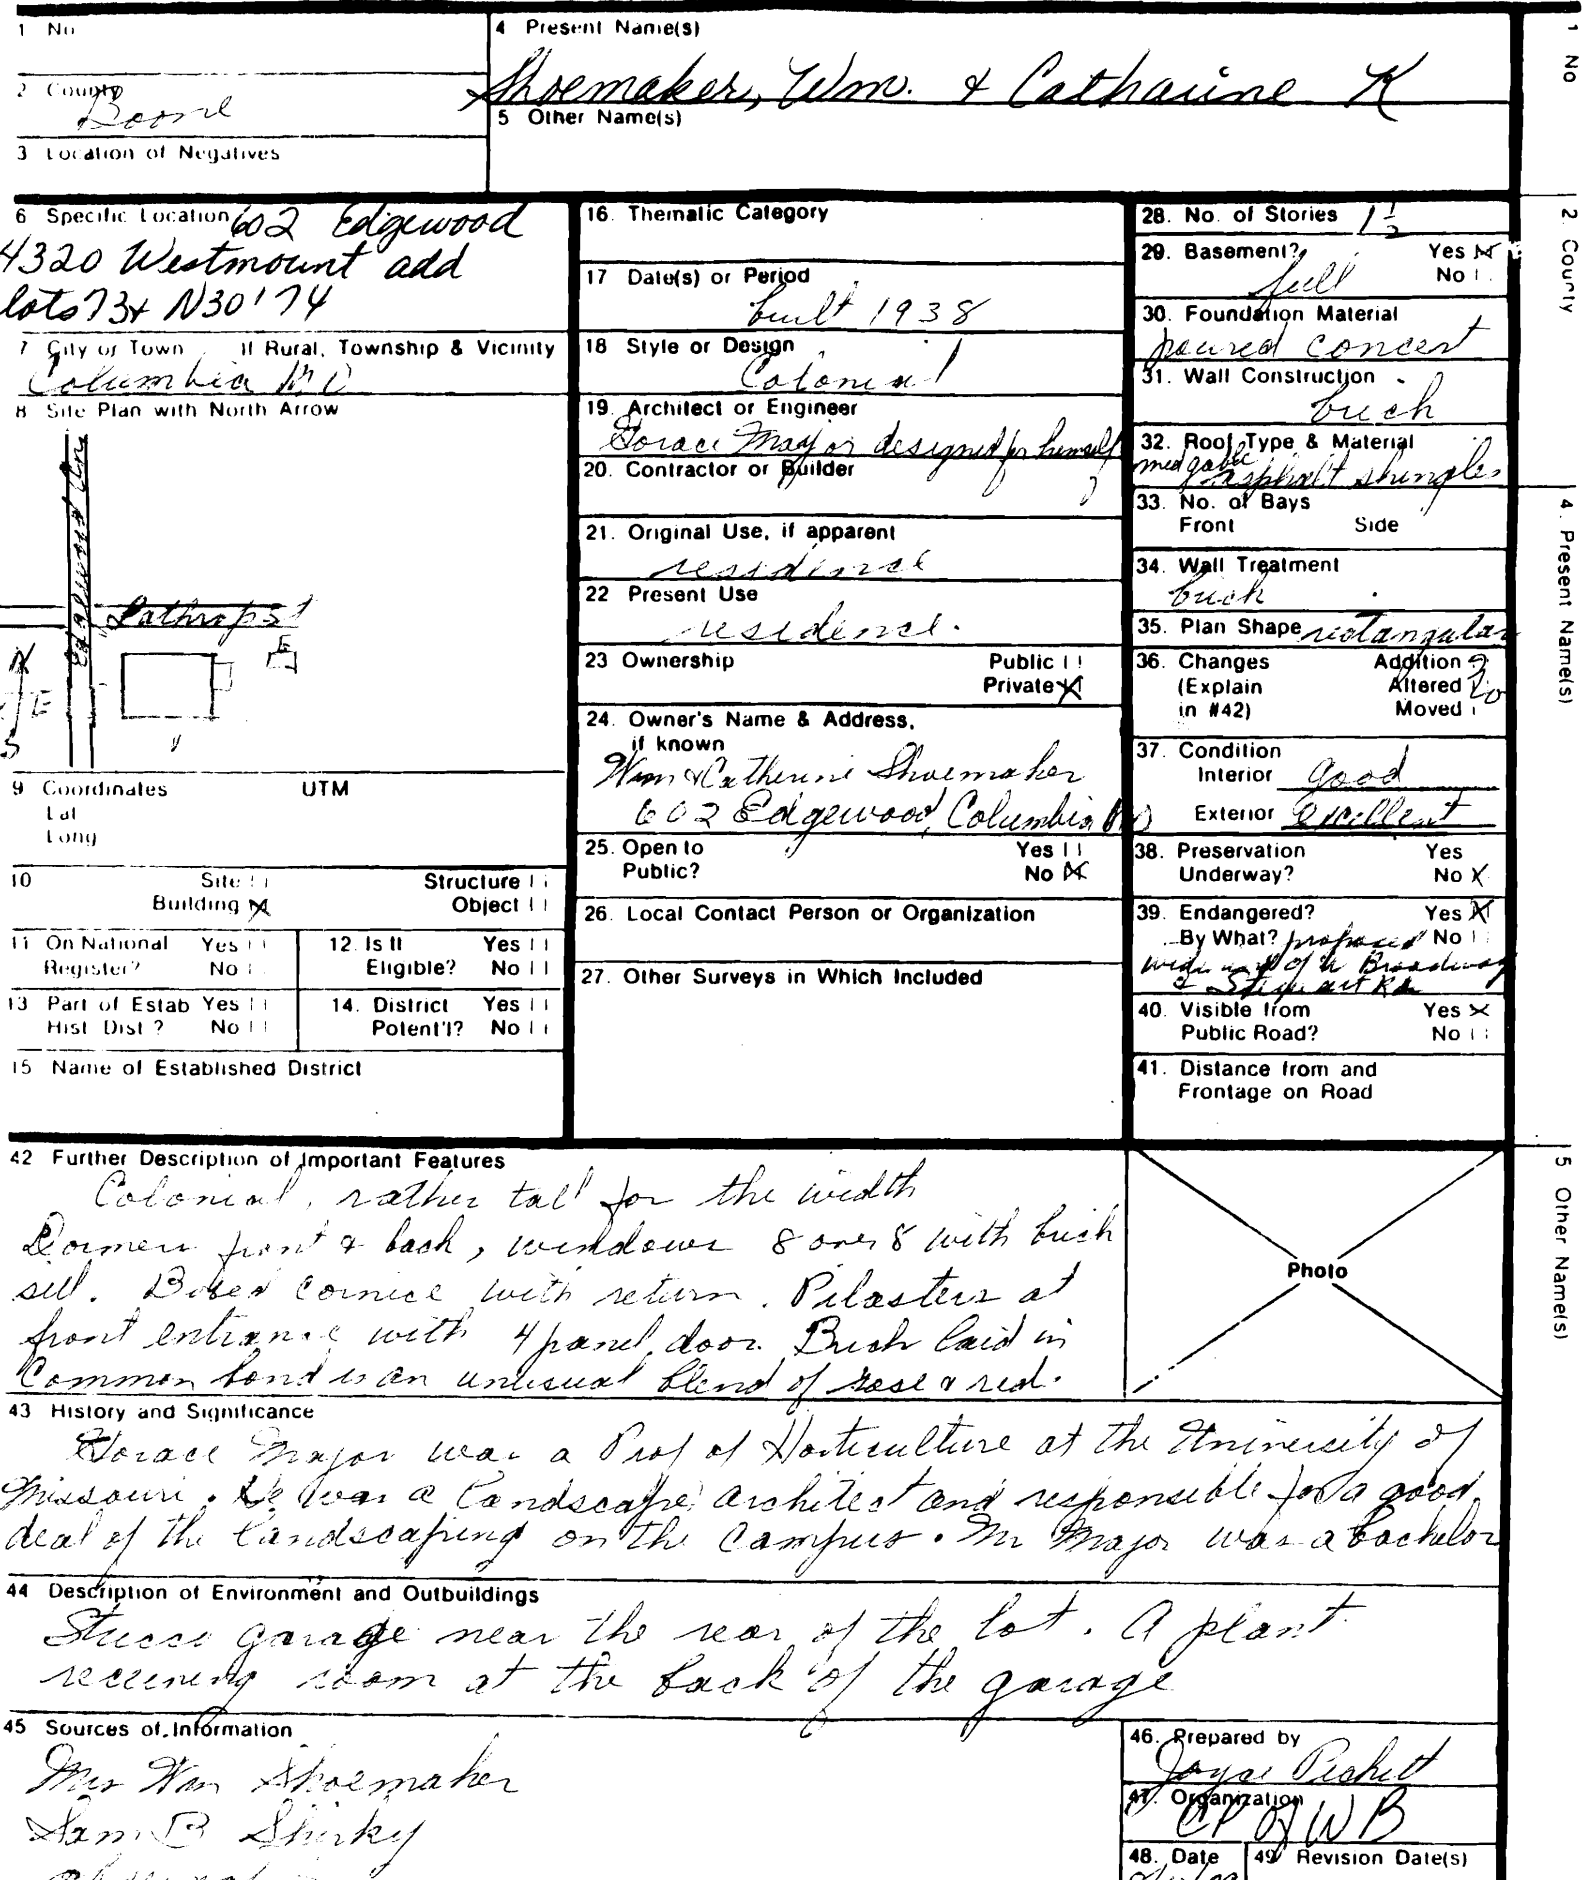 1 No
4 Present Name(s)
Shoemaker, Wm. & Catharine K
2 County
Boone
5 Other Name(s)
3 Location of Negatives
6 Specific Location 602 Edgewood
4320 Westmount add
lots 73+ N30' 74
7 City or Town If Rural, Township & Vicinity
Columbia MO
8 Site Plan with North Arrow
Edgewood
Lathrop
N
E
S
9 Coordinates UTM
Lat
Long
10 Site Structure
Building X Object
11 On National Yes
Register? No
12. Is It Yes
Eligible? No
13 Part of Estab Yes
Hist Dist? No
14. District Yes
Potent'l? No
15 Name of Established District
16. Thematic Category
17 Date(s) or Period
built 1938
18 Style or Design
Colonial
19. Architect or Engineer
Horace Major designed for himself
20. Contractor or Builder
?
21. Original Use, if apparent
residence
22 Present Use
residence.
23 Ownership Public
Private X
24. Owner's Name & Address,
if known
Wm & Catherine Shoemaker
602 Edgewood, Columbia Mo
25. Open to Yes
Public? No X
26. Local Contact Person or Organization
27. Other Surveys in Which Included
28. No. of Stories 1 1/2
29. Basement? Yes X
full No
30. Foundation Material
poured concert
31. Wall Construction
brick
32. Roof Type & Material
med gable asphalt shingles
33. No. of Bays
Front Side
34. Wall Treatment
brick
35. Plan Shape rectangular
36. Changes Addition
(Explain Altered
in #42) Moved
37. Condition
Interior good
Exterior excellent
38. Preservation Yes
Underway? No X
39. Endangered? Yes X
By What? proposed No
of W Broadway
& Stewart Rd
40. Visible from Yes X
Public Road? No
41. Distance from and
Frontage on Road
42 Further Description of Important Features
Colonial, rather tall for the width
Dormers front & back, windows 8 over 8 with brick
sill. Boxed cornice with return. Pilasters at
front entrance with 4 panel door. Brick laid in
Common bond is an unusual blend of rose & red.
Photo
43 History and Significance
Horace Major was a Prof of Horticulture at the University of
Missouri. He was a landscape architect and responsible for a good
deal of the landscaping on the campus. Mr Major was a bachelor
44 Description of Environment and Outbuildings
Stucco garage near the rear of the lot. A plant
receiving room at the back of the garage
45 Sources of Information
Mrs Wm Shoemaker
Sam B Shirky
46. Prepared by
Joyce
47. Organization
48. Date
49 Revision Date(s)
1 No
2 County
4. Present Name(s)
5 Other Name(s)